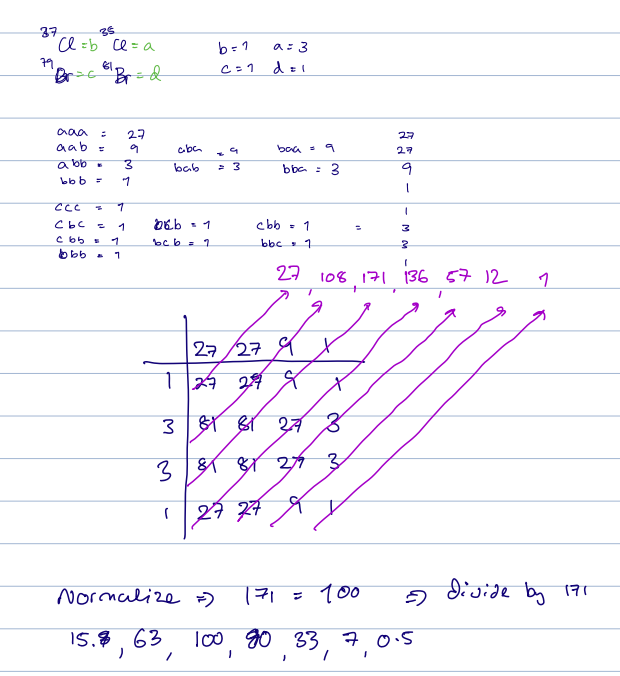 37Cl = b 35Cl = a b = 1 a = 3
79Br = c 81Br = d c = 1 d = 1
aaa = 27 27
aab = 9 aba = 9 baa = 9 27
abb = 3 bab = 3 bba = 3 9
bbb = 1 1
ccc = 1 1
cbc = 1 bcb = 1 cbb = 1 = 3
cbb = 1 bcb = 1 bbc = 1 3
bbb = 1 1
27, 108, 171, 136, 57 12 1
27 27 9 1
1 27 27 9 1
3 81 81 27 3
3 81 81 27 3
1 27 27 9 1
Normalize => 171 = 100 => divide by 171
15.8, 63, 100, 80, 33, 7, 0.5